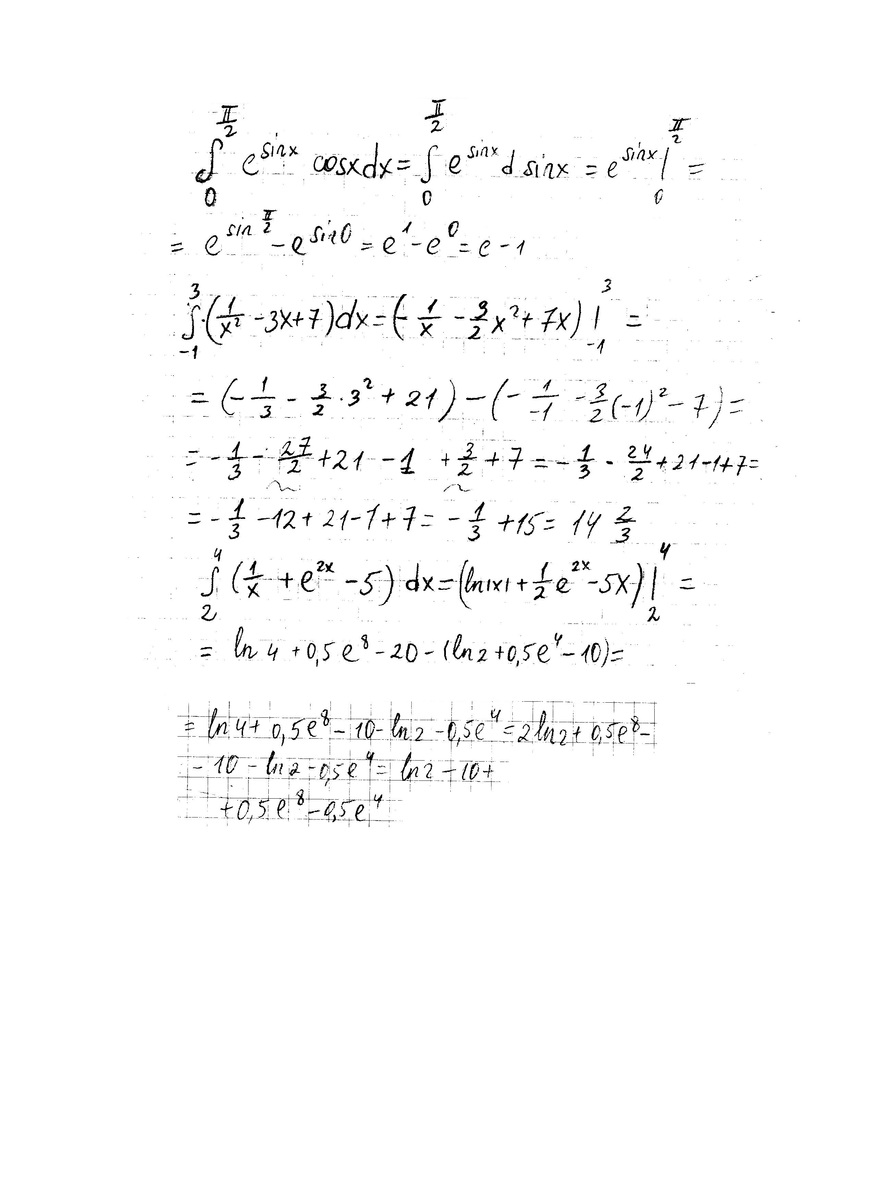 ∫₀^(π/2) e^(sinx) cosxdx = ∫₀^(π/2) e^(sinx) d sinx = e^(sinx) |₀^(π/2) =
= e^(sin π/2) - e^(sin0) = e¹ - e⁰ = e - 1
∫₋₁³ (1/x² - 3x + 7)dx = (- 1/x - 3/2 x² + 7x) |₋₁³ =
= (- 1/3 - 3/2 · 3² + 21) - (- 1/-1 - 3/2 (-1)² - 7) =
= - 1/3 - 27/2 + 21 - 1 + 3/2 + 7 = - 1/3 - 24/2 + 21 - 1 + 7 =
= - 1/3 - 12 + 21 - 1 + 7 = - 1/3 + 15 = 14 2/3
∫₂⁴ (1/x + e^(2x) - 5) dx = (ln|x| + 1/2 e^(2x) - 5x) |₂⁴ =
= ln 4 + 0,5 e⁸ - 20 - (ln2 + 0,5e⁴ - 10) =
= ln4 + 0,5e⁸ - 10 - ln2 - 0,5e⁴ = 2ln2 + 0,5e⁸ -
- 10 - ln2 - 0,5e⁴ = ln2 - 10 +
+ 0,5e⁸ - 0,5e⁴